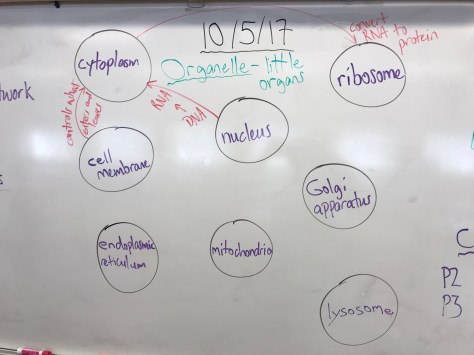 10/5/17
Organelle - little
organs
cytoplasm
convert
RNA to
protein
ribosome
RNA
DNA
nucleus
controls what
enters and
leaves
cell
membrane
Golgi
apparatus
endoplasmic
reticulum
mitochondria
lysosome
twork
s
C
P2
P3